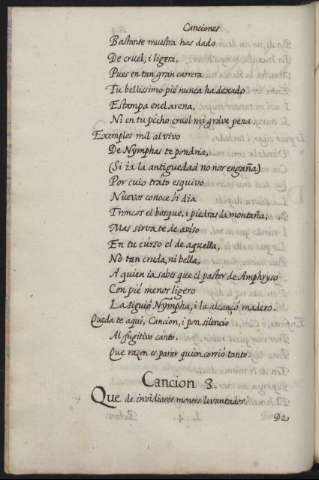 Canciones
Bastante muestra has dado
De cruel, i ligera,
Pues en tan gran carrera
Tu bellissimo pié nunca ha dexado
Estampa enel arena,
Ni en tu pecho cruel mi grave pena.
Exemplos mil al vivo
De Nymphas te pondria,
(Si ià la antiguedad no nos engaña)
Por cuio trato esquivo
Nuevos conoce oi dia
Troncos el bosque, i piedras la montaña;
Mas sirvate de aviso
En tu curso el de aquella,
No tan cruda, ni bella,
A quien ia sabes que el pastor de Amphryso
Con pié menos ligero
La siguiò Nympha, i la alcançò madero.
Queda te aqui, Cancion, i pon silencio
Al fugitivo canto.
Que razon es parar quien corriò tanto.
Cancion 3.
Que de invidiosos montes levantados,
De